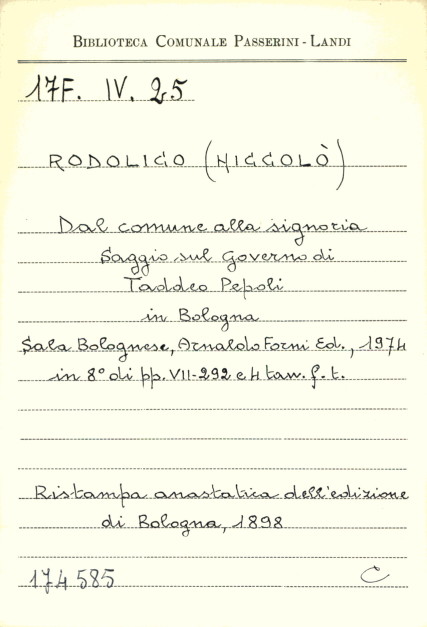 BIBLIOTECA COMUNALE PASSERINI - LANDI
17F. IV. 25
RODOLICO (NICCOLÒ)
Dal comune alla signoria
Saggio sul governo di
Taddeo Pepoli
in Bologna
Sala Bolognese, Arnaldo Forni Ed., 1974
in 8° di pp. VII-292 e 4 tav. f. t.
Ristampa anastatica dell'edizione
di Bologna, 1898
174585 C